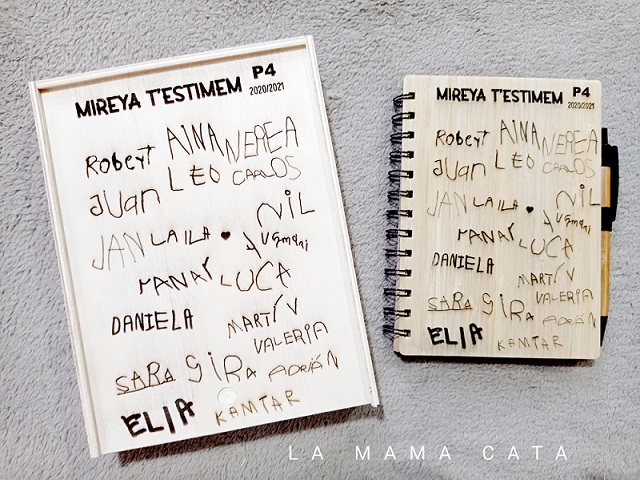 MIREYA T'ESTIMEM P4
2020/2021
Robert AINA NEREA
JUAN LEO CARLOS
JAN LAILA NIL
MANAR LUCA
DANIELA MARTÍ
VALERIA
SARA GIRA ADRIÁN
ELIA KAMTAR
MIREYA T'ESTIMEM P4
2020/2021
Robert AINA NEREA
JUAN LEO CARLOS
JAN LAILA NIL
MANAR LUCA
DANIELA MARTÍ
VALERIA
SARA GIRA ADRIÁN
ELIA KAMTAR
LA MAMA CATA